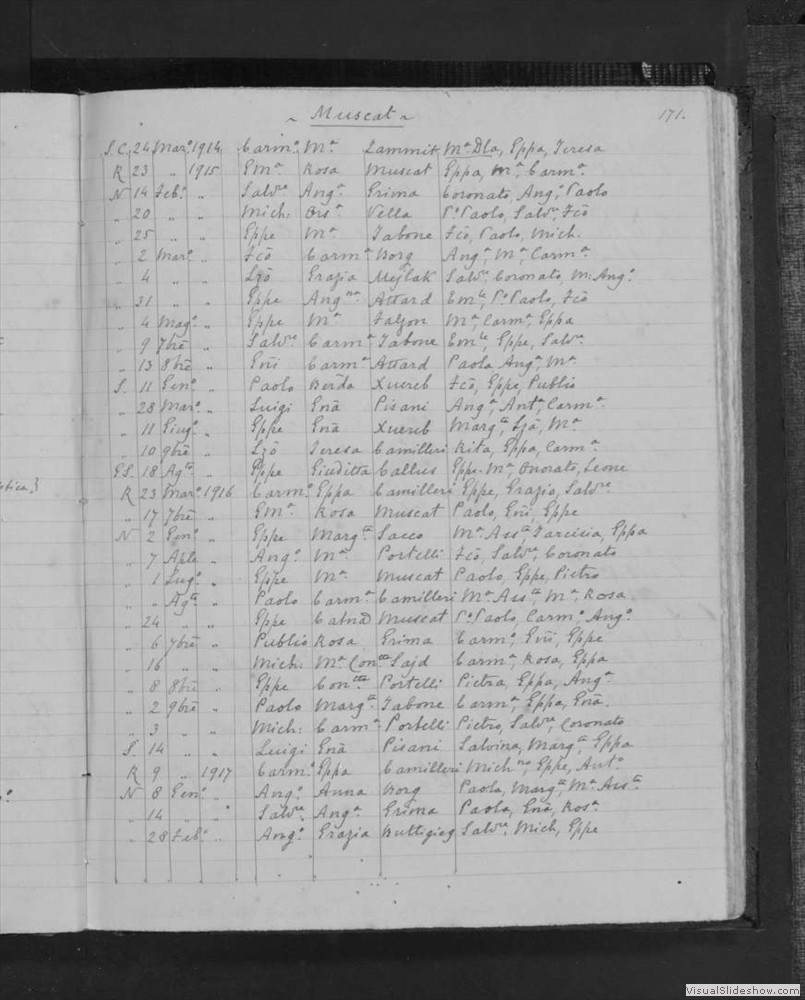 ~ Muscat ~ 171.
S.C. 24 Mar.º 1914 Carm.º M.ª Zammit M.ª Dla, Eppa, Teresa
R 23 " 1915 Em.ª Rosa Muscat Eppa, M.ª, Carm.ª
N 14 Feb.º " Salv.re Ang.ª Grima Coronato, Ang.º, Paolo
" 20 " " Mich: Ors.ª Vella P.º Paolo, Salv.re, Fcõ
" 25 " " Eppe M.ª Tabone Fcõ, Paolo, Mich.
" 2 Mar.º " Fcõ Carm.ª Borg Ang.ª, M.ª, Carm.ª
" 4 " " Lzõ Grazia Mejlak Salv.re, Coronato, M: Ang.º
" 31 " " Eppe Ang.na Attard Em.le, P.º Paolo, Fcõ
" 4 Mag.º " Eppe M.ª Falzon M.ª, Carm.ª, Eppa
" 9 7brẽ " Salv.re Carm.ª Tabone Em.le, Eppe, Salv.re
" 13 8brẽ " Eñi Carm.ª Attard Paola, Ang.ª, M.ª
S. 11 Gen.º " Paolo Berda Xuereb Fcõ, Eppe, Publio
" 28 Mar.º " Luigi Enã Pisani Ang.ª, Ant.ª, Carm.ª
" 11 Giug.º " Eppe Enã Xuereb Marg.ta, Lzã, M.ª
" 10 9brẽ " Lzõ Teresa Camilleri Rita, Eppa, Carm.ª
G.S. 18 Ag.to " Eppe Giuditta Callus Eppe M.ª, Onorato, Leone
R 23 Mar.º 1916 Carm.º Eppa Camilleri Eppe, Grazia, Salv.re
" 17 7brẽ " Em.ª Rosa Muscat Paolo, Eñi, Eppe
N 2 Gen.º " Eppe Marg.ta Sacco M.ª Ass.ta, Tarcisia, Eppa
" 7 Aple " Ang.º M.ª Portelli Fcõ, Salv.re, Coronato
" 1 Lug.º " Eppe M.ª Muscat Paolo, Eppe, Pietro
" " Ag.to " Paolo Carm.ª Camilleri M.ª Ass.ta, M.ª, Rosa
" 24 " " Eppe Catna Muscat P.º Paolo, Carm.º, Ang.º
" 6 7brẽ " Publio Rosa Grima Carm.º, Eñi, Eppe
" 16 " " Mich: M.ª Con.tta Sajd Carm.ª, Rosa, Eppa
" 8 8brẽ " Eppe Con.tta Portelli Pietra, Eppa, Ang.ª
" 2 9brẽ " Paolo Marg.ta Tabone Carm.ª, Eppa, Enã.
" 3 " " Mich: Carm.ª Portelli Pietro, Salv.re, Coronato
S. 14 " " Luigi Enã Pisani Salvina, Marg.ta, Eppa
R 9 " 1917 Carm.º Eppa Camilleri Mich.no, Eppe, Ant.º
N 8 Gen.º " Ang.º Anna Borg Paola, Marg.ta, M.ª Ass.ta
" 14 " " Salv.re Ang.ª Grima Paola, Enã, Ros.ª
" 28 Feb.º " Ang.º Grazia Buttigieg Salv.re, Mich, Eppe
VisualSlideshow.com